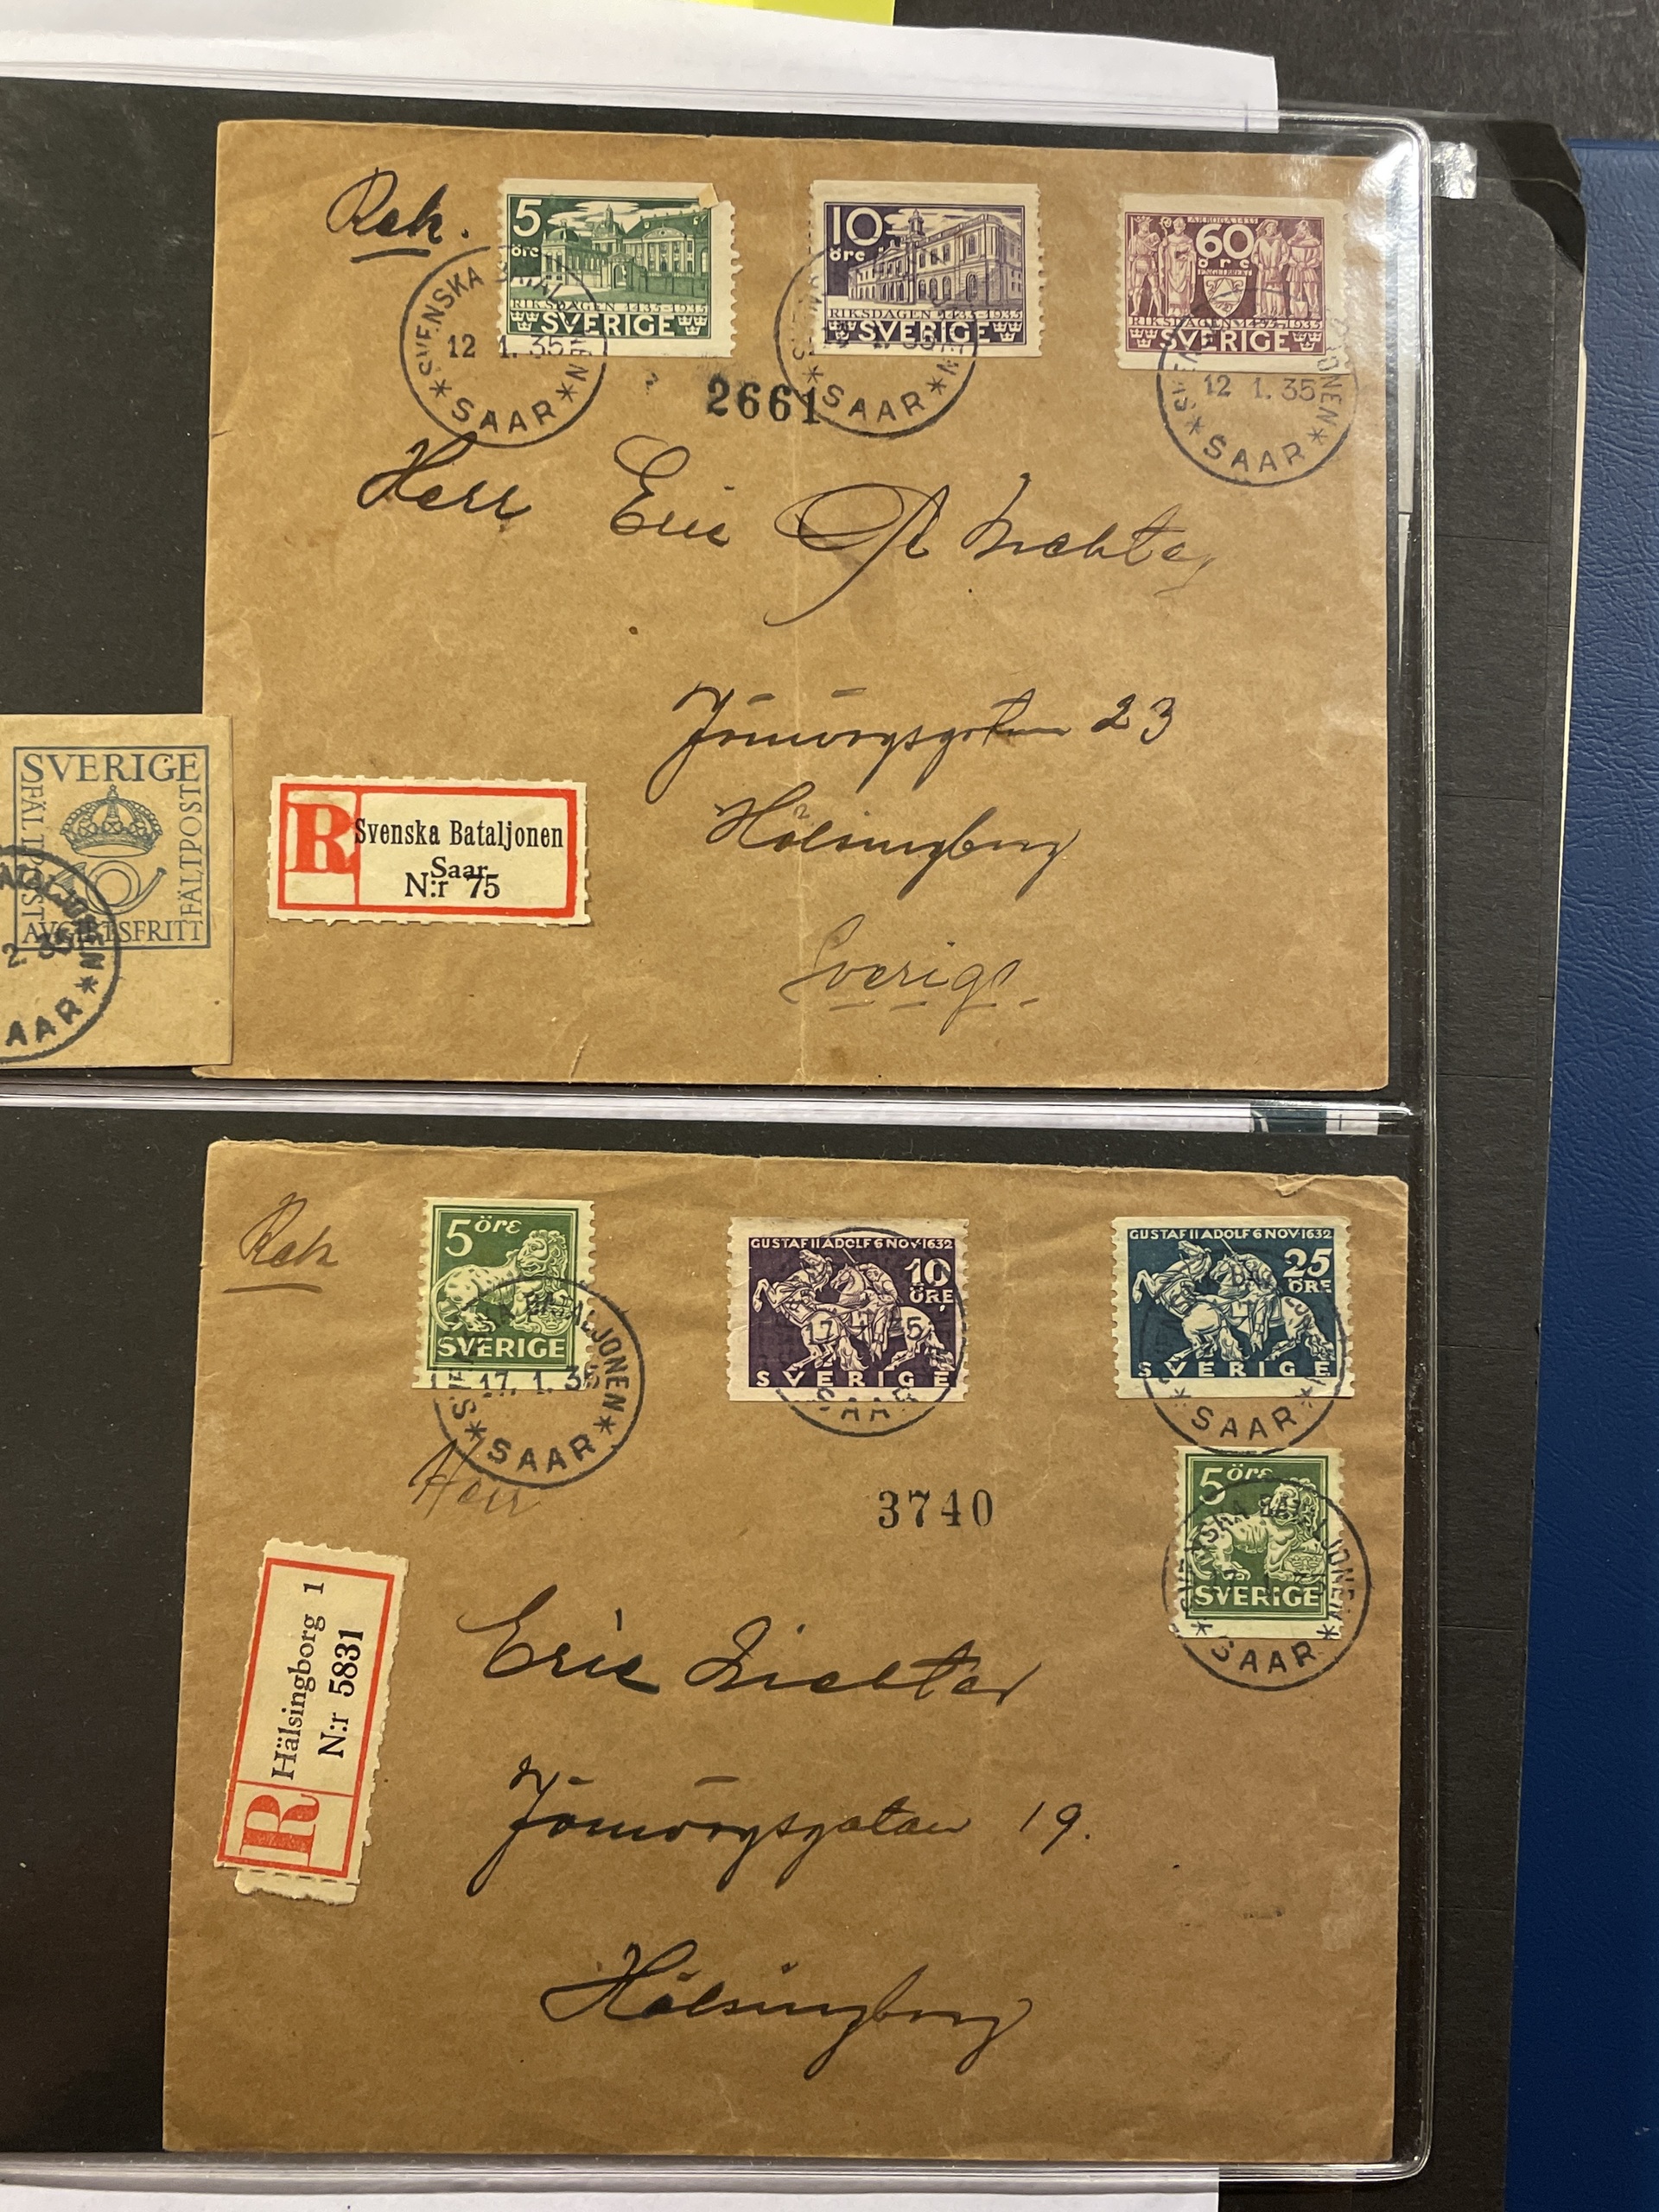 Rek.
5 öre
RIKSDAGEN 1435-1935
SVERIGE
10 öre
RIKSDAGEN 1435-1935
SVERIGE
ARBOGA 1435
60 öre
ENGELBREKT
RIKSDAGEN 1435-1935
SVERIGE
SVENSKA BATALJONEN
12 1. 35
* SAAR *
* SAAR *
12 1. 35
* SAAR *
2661
Herr Eric
Jönörgsgatan 23
Hälsingborg
Sverige
R Svenska Bataljonen
Saar
N:r 75
SVERIGE
FÄLTPOST
FÄLTPOST
AVGIFTSFRITT
2. 35
SAAR *
Rek
5 öre
SVERIGE
GUSTAF II ADOLF 6 NOV 1632
10 ÖRE
SVERIGE
GUSTAF II ADOLF 6 NOV 1632
25 ÖRE
SVERIGE
BATALJONEN
17. 1. 35
* SAAR *
SAAR
* SAAR *
5 öre
SVERIGE
SVENSKA BATALJONEN
* SAAR *
Herr
3740
R Hälsingborg 1
N:r 5831
Eric Lichter
19.
Hälsingborg